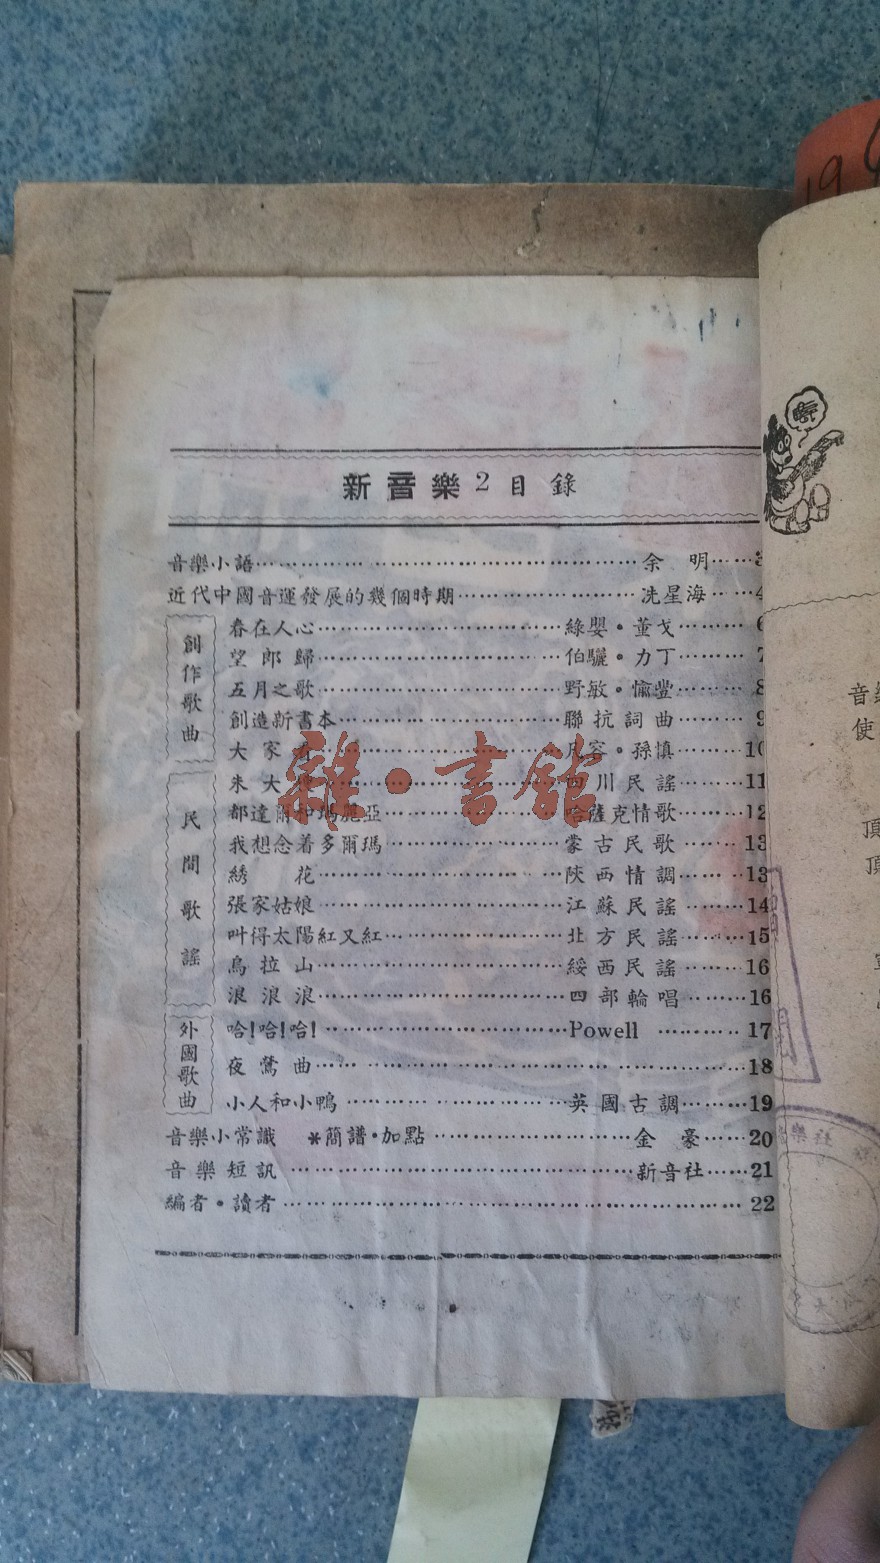 新音樂2目錄
音樂小語……余明……3
近代中國音運發展的幾個時期……冼星海……4
創作歌曲
春在人心……綠嬰・董戈……6
望郎歸……伯驪・力丁……7
五月之歌……野敏・愉豐……8
創造新書本……聯抗詞曲……9
大家……凡容・孫慎……10
民間歌謠
朱大……四川民謠……11
都達爾和瑪麗亞……哈薩克情歌……12
我想念着多爾瑪……蒙古民歌……13
綉花……陝西情調……13
張家姑娘……江蘇民謠……14
叫得太陽紅又紅……北方民謠……15
烏拉山……綏西民謠……16
浪浪浪……四部輪唱……16
外國歌曲
哈!哈!哈!……Powell……17
夜鶯曲……18
小人和小鴨……英國古調……19
音樂小常識 *簡譜・加點……金豪……20
音樂短訊……新音社……21
編者・讀者……22
雜・書館
音
使
頂
頂
19